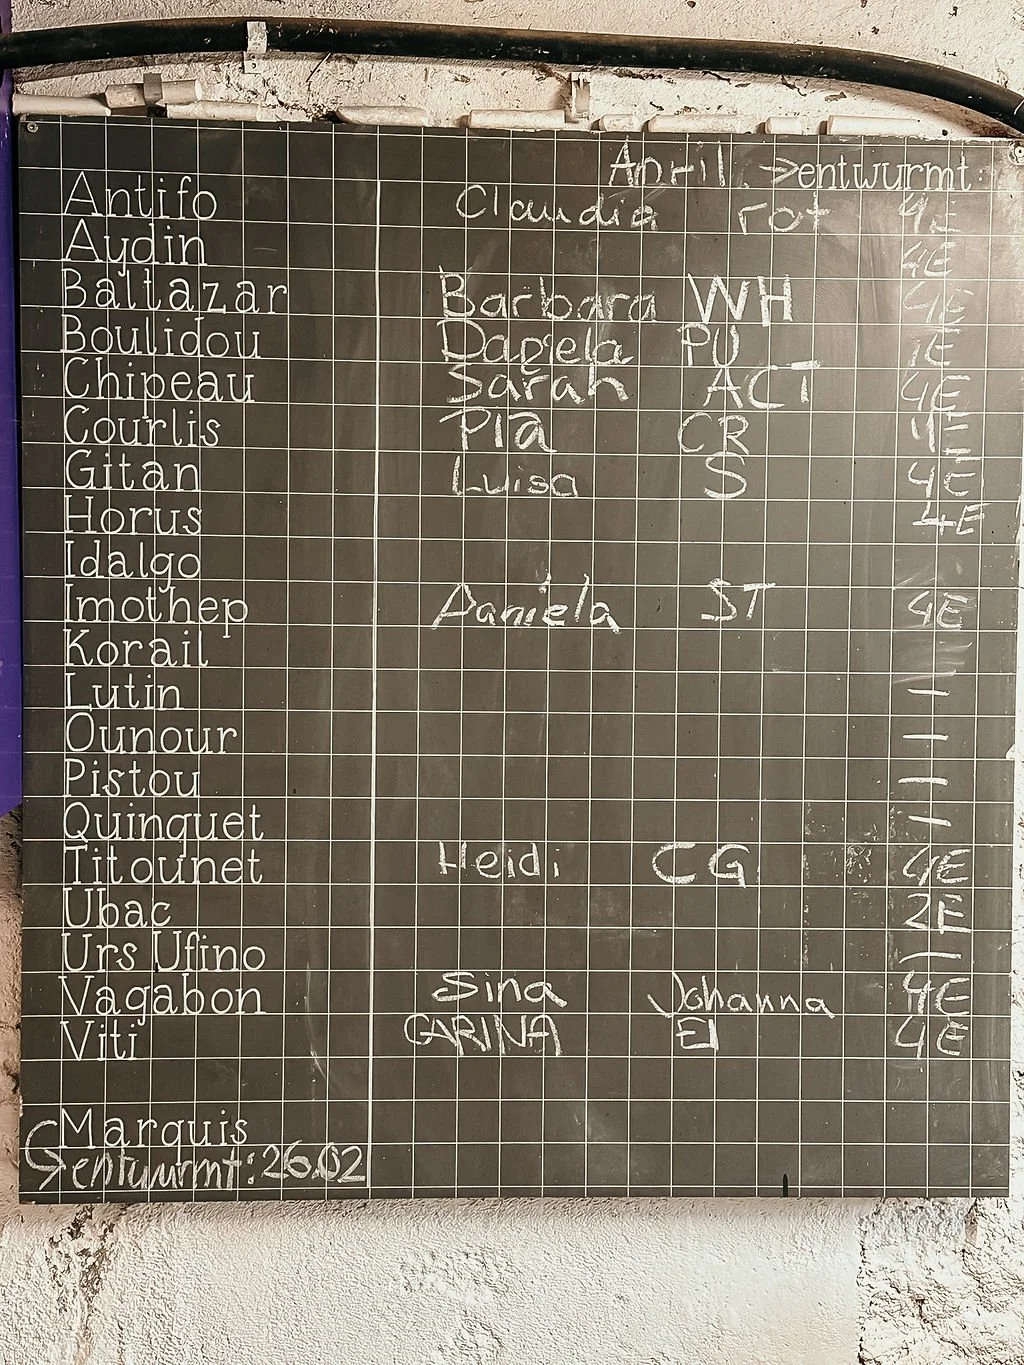 April. ->entwurmt:
Antifo Claudia rot 4E
Aydin 4E
Baltazar Barbara WH 4E
Boulidou Daniela PU 1E
Chipeau Sarah ACT 4E
Courlis Pia CR 4E
Gitan Luisa S 4E
Horus 4E
Idalgo
Imothep Daniela ST 4E
Korail
Lutin —
Ounour —
Pistou —
Quinquet —
Titounet Heidi CG 4E
Ubac 2E
Urs Ufino —
Vagabon Sina Johanna 4E
Viti CARINA EI 4E
Marquis
entwurmt: 26.02